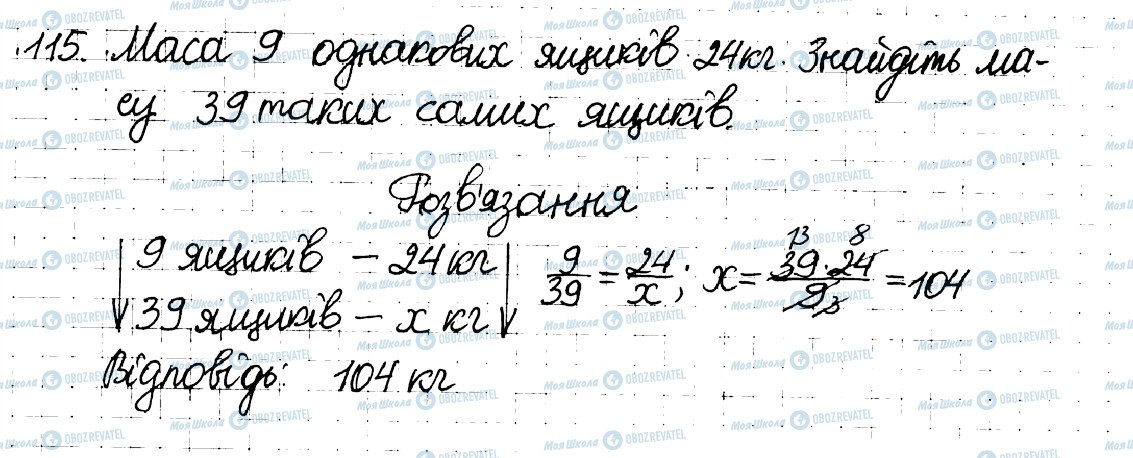 115. Маса 9 однакових ящиків 24кг. Знайдіть ма-
су 39 таких самих ящиків.
Розв'язання
9 ящиків – 24 кг
39 ящиків – x кг
9/39 = 24/x; x = 39·24/9 = 104
13 8 3
Відповідь: 104 кг
МояШкола OBOZREVATEL